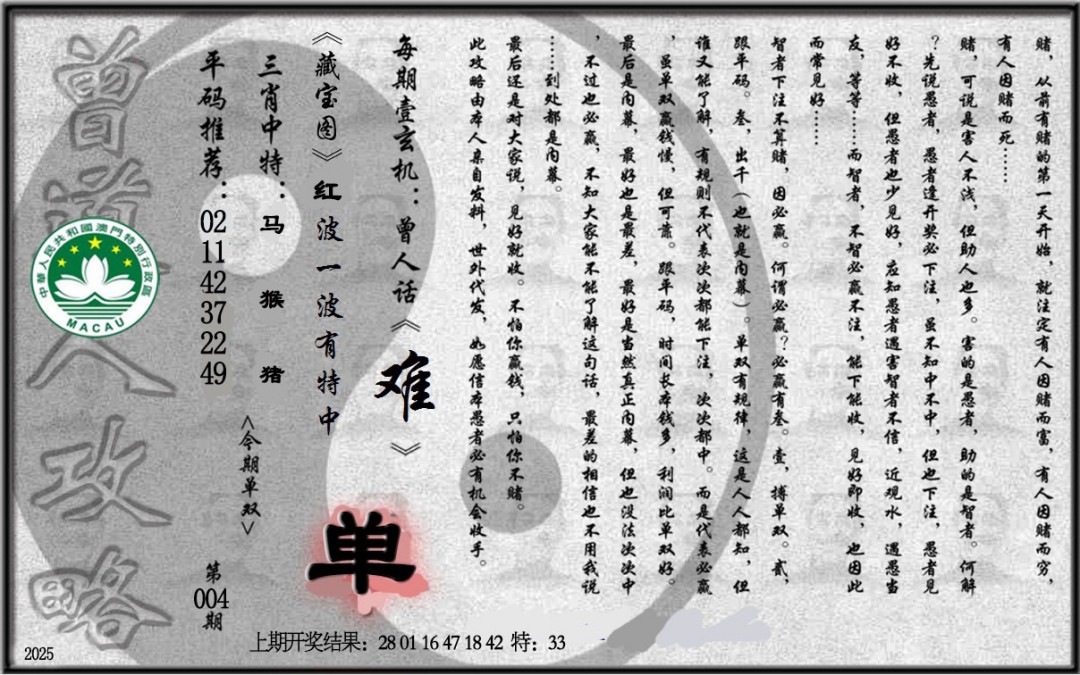 赌，从前有赌的第一天开始，就注定有人因赌而富，有人因赌而穷，
有人因赌而死……
赌，可说是害人不浅，但助人也多。害的是愚者，助的是智者。何解
？先说愚者，愚者逢开奖必下注，虽不知中不中，但也下注，愚者见
好不收，但愚者也少见好，应知愚者遇害智者不信，近观水，遇愚当
友，等等……而智者，不智必赢不注，能下能收，见好即收，也因此
而常见好……
智者下注不算赌，因必赢。何谓必赢？必赢有叁。壹，搏单双。贰，
跟平码。叁，出千（也就是内幕）。单双有规律，这是人人都知，但
谁又能了解，有规则不代表次次都能下注，次次都中。而是代表必赢
，虽单双赢钱慢，但可靠。跟平码，时间长本钱多，利润比单双好。
最后是内幕，最好也是最差，最好是当然真正内幕，但也没法次次中
，不过也必赢，不知大家能不能了解这句话，最差的相信也不用我说
……到处都是内幕。
最后还是对大家说，见好就收。不怕你赢钱，只怕你不赌。
此攻略由本人亲自发料，世外代发，如愿信本愚者必有机会收手。
每期壹玄机：曾人话《难》
《藏宝图》红波一波有特中
单
三肖中特：马 猴 猪
<今期单双>
平码推荐：02 11 42 37 22 49
第004期
曾道人攻略
中華人民共和國澳門特別行政區
MACAU
上期开奖结果：28 01 16 47 18 42 特：33
2025